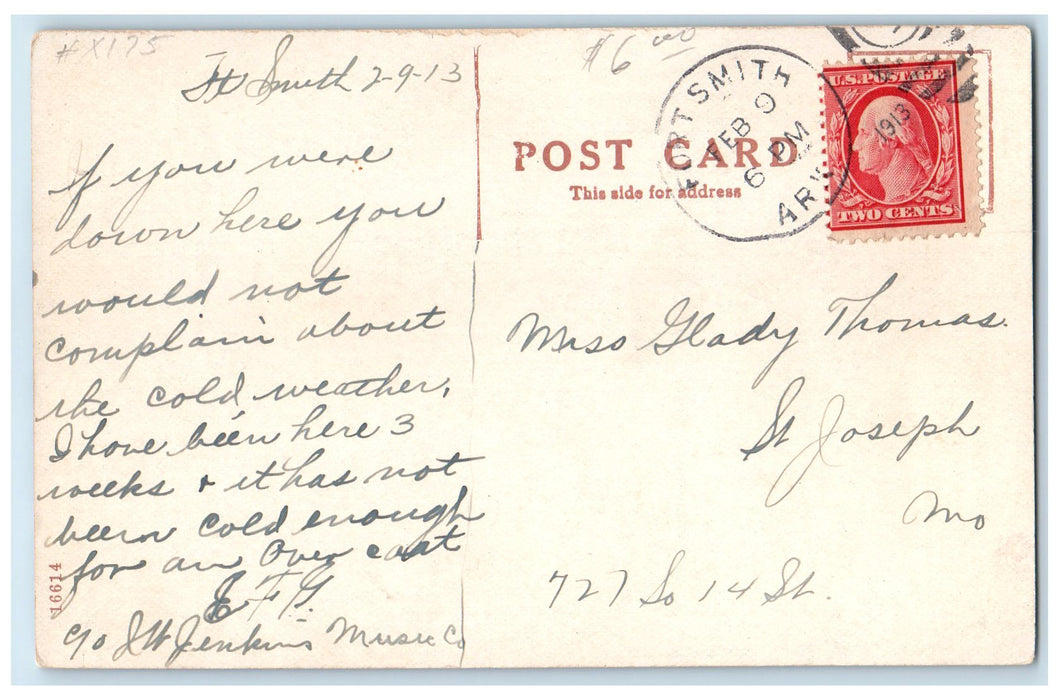 #X175
Ft Smith 2-9-13
If you were
down here you
would not
complain about
the cold weather,
I have been here 3
weeks & it has not
been cold enough
for an Over coat
c/o J W Jenkins Music Co
16614
$6.00
POST CARD
This side for address
FORT SMITH
FEB 9
6 PM
ARK.
1913
U.S. POSTAGE
TWO CENTS
Miss Glady Thomas.
St Joseph
Mo
727 So 14 St.